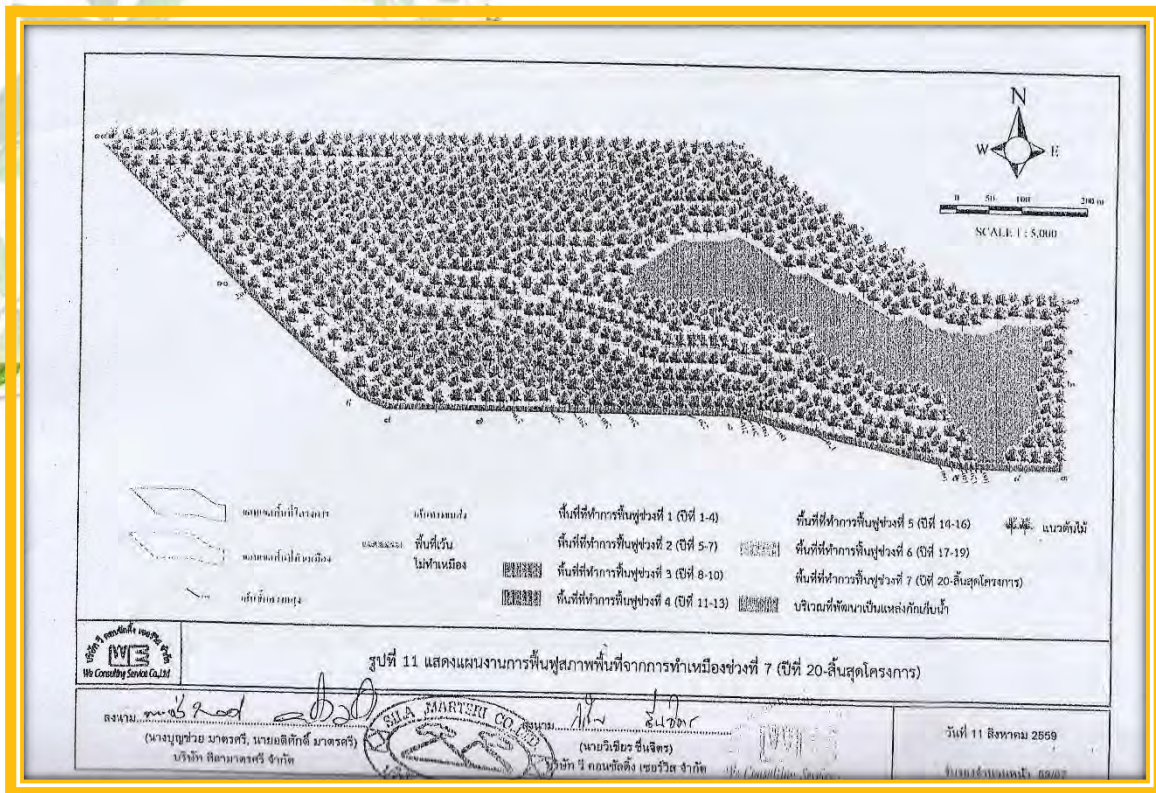 N
W E
0 50 100 200 m
SCALE 1 : 5,000
๘ ๗ ๓
ขอบเขตพื้นที่โครงการ
พื้นที่เว้น
ไม่ทำเหมือง
พื้นที่ที่ทำการฟื้นฟูช่วงที่ 1 (ปีที่ 1-4)
พื้นที่ที่ทำการฟื้นฟูช่วงที่ 2 (ปีที่ 5-7)
พื้นที่ที่ทำการฟื้นฟูช่วงที่ 3 (ปีที่ 8-10)
พื้นที่ที่ทำการฟื้นฟูช่วงที่ 4 (ปีที่ 11-13)
พื้นที่ที่ทำการฟื้นฟูช่วงที่ 5 (ปีที่ 14-16)
พื้นที่ที่ทำการฟื้นฟูช่วงที่ 6 (ปีที่ 17-19)
พื้นที่ที่ทำการฟื้นฟูช่วงที่ 7 (ปีที่ 20-สิ้นสุดโครงการ)
บริเวณที่พัฒนาเป็นแหล่งกักเก็บน้ำ
แนวต้นไม้
บริษัท วี คอนซัลติ้ง เซอร์วิส จำกัด
WE
We Consulting Service Co.,Ltd
รูปที่ 11 แสดงแผนงานการฟื้นฟูสภาพพื้นที่จากการทำเหมืองช่วงที่ 7 (ปีที่ 20-สิ้นสุดโครงการ)
ลงนาม
(นางบุญช่วย มาตรศรี, นายอดิศักดิ์ มาตรศรี)
บริษัท ศิลามาตรศรี จำกัด
SILA MARTSRI CO.,LTD.
ลงนาม
(นายวิเชียร ชื่นจิตร)
บริษัท วี คอนซัลติ้ง เซอร์วิส จำกัด
We Consulting Service
วันที่ 11 สิงหาคม 2559